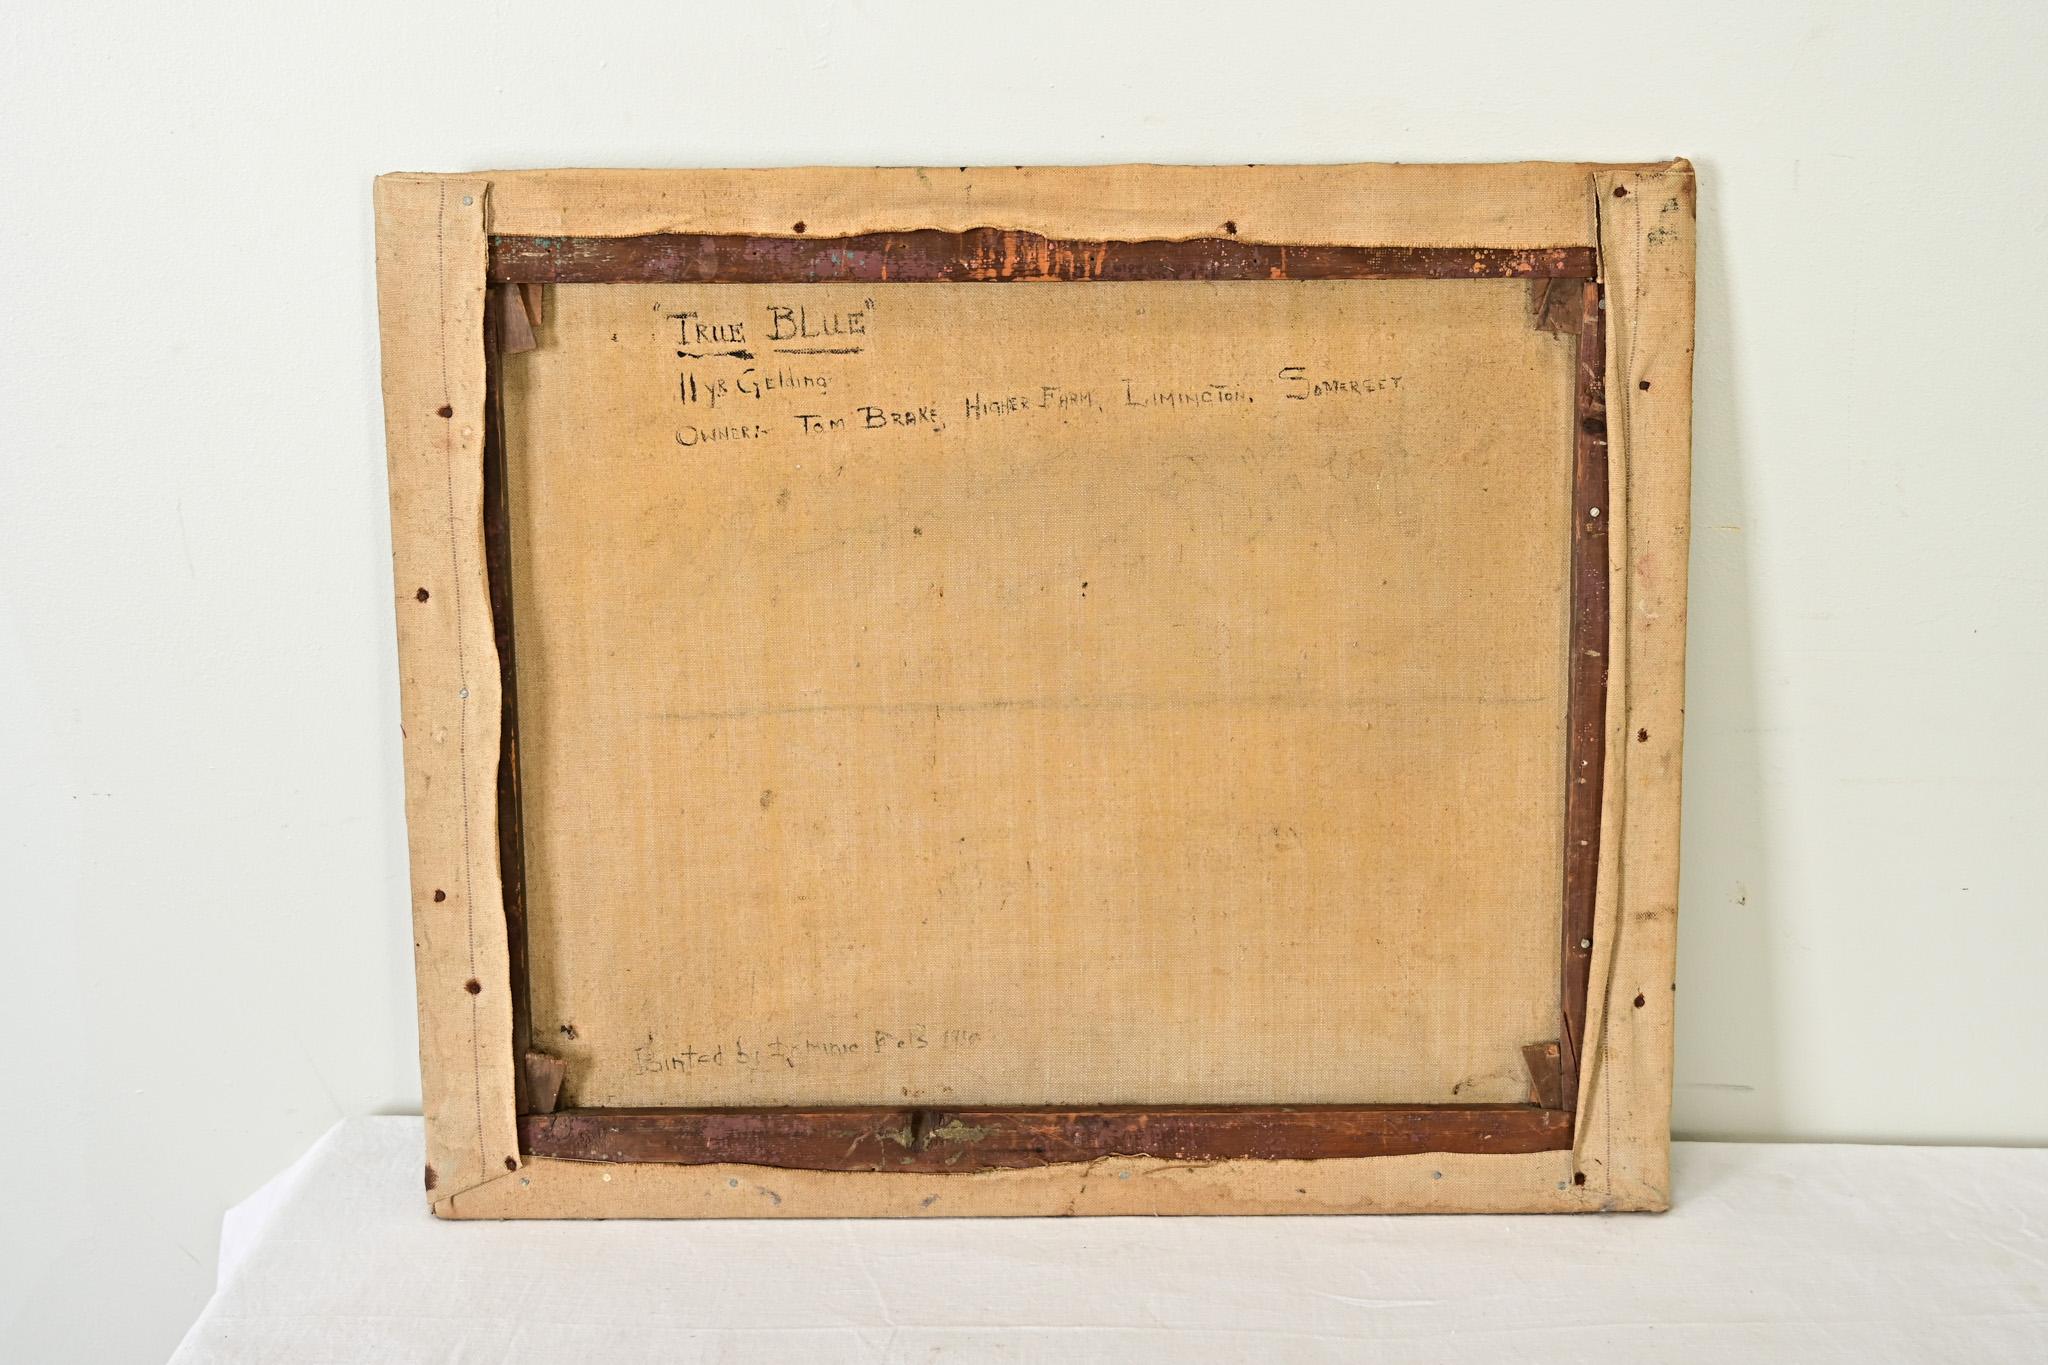 "TRUE BLUE"
11 yr Gelding
OWNER:- TOM BRAKE, HIGHER FARM, LIMINGTON, SOMERSET.
Painted by